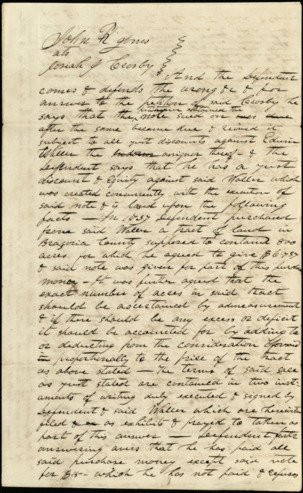 John R Jones
als
Josiah J Crosby
And the Defendent
comes & defends the wrong &c & for
answer to the petition of said Crosby he
says that the note sued on was
after the same became due & received it
subject to all just discounts against Edwin
Waller the assignor thereof & the
Defendant says that he has a just
discount & Equity against said Waller which
was created concurrently with the execution of
said note & is based upon the following
facts — In 1837 Defendent purchased
from said Waller a tract of land in
Brazoria County supposed to contain 800
acres. for which he agreed to give $
& said note was given for part of this purch
money — It was further agreed that the
exact number of acres in said tract
should be ascertained by admeasurement
& if there should be any excess or deficit
it should be accounted for by adding to
or deducting from the consideration
in proportionally to the price of the tract
as above stated — The terms of said sale
as just stated are contained in two inst
ruments of writing duly executed & signed by
Defendent & said Waller which are herewith
filed as exhibits & prayed to taken as
part of this answer — Defendent
answering avers that he has paid all
said purchase money except said note
for which he has not paid & refuses